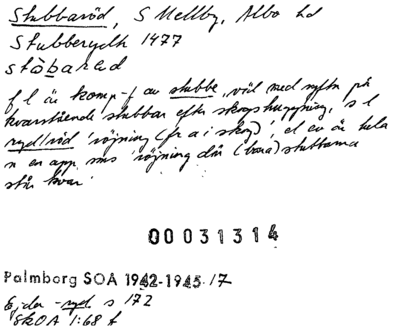 Stubbaröd, S Mellby, Albo hd
Stubberydh 1477
f l är komp-f av stubbe, väl med syftn på
kvarstående stubbar efter skogshuggning, s l
ryd/röd 'röjning (fr a i skog)', el ev är hela
n en app sms 'röjning där (bara) stubbarna
står kvar'
00031314
Palmborg SOA 1942-1945 /7
Ejder -ryd s 172
SkOA 1:68 f